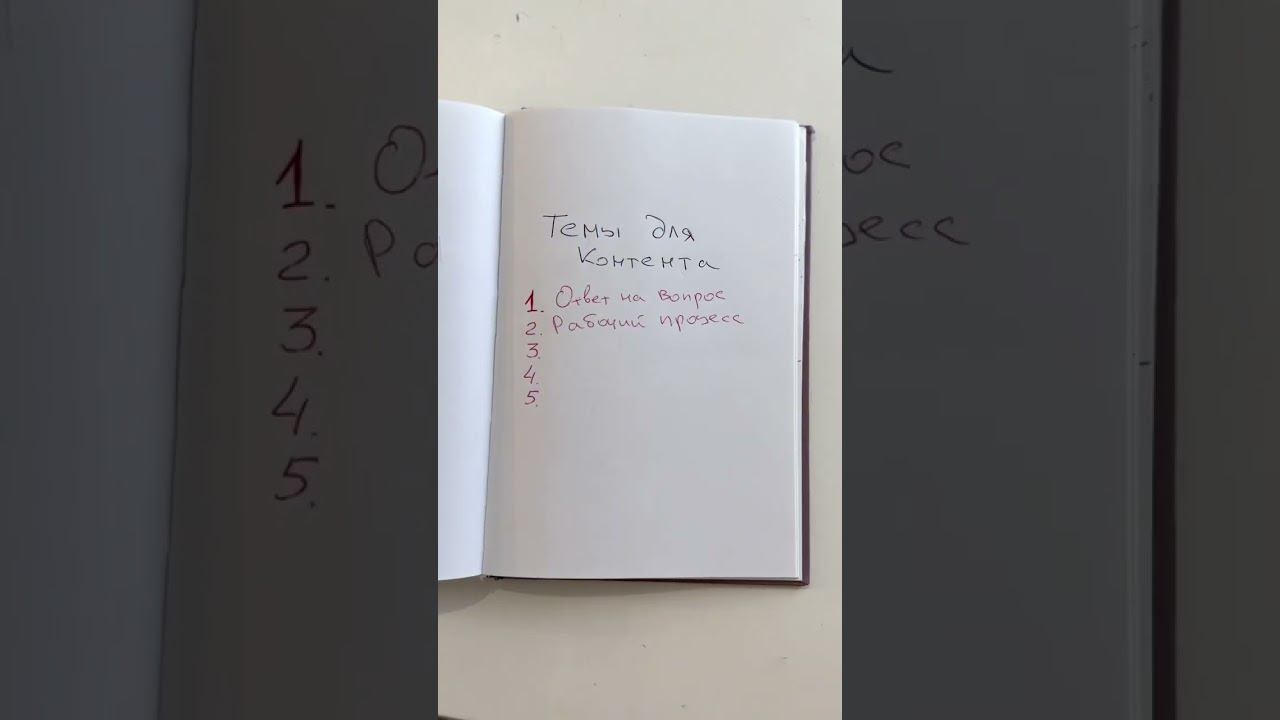 Темы для
Контента
1. Ответ на вопрос
2. Рабочий процесс
3.
4.
5.